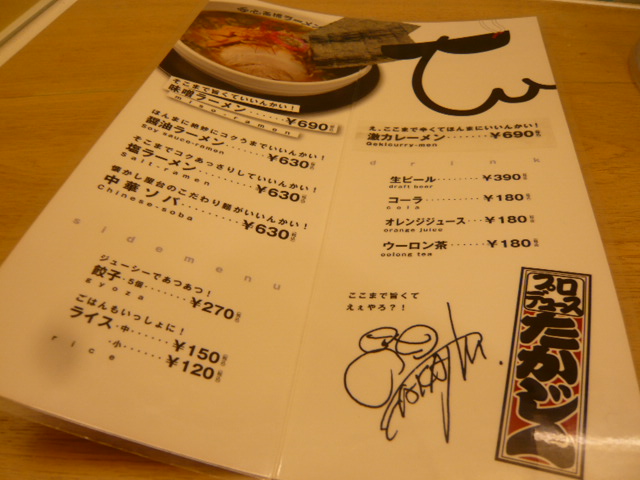 味噌ラーメン
そこまで旨くていいんかい！
味噌ラーメン……¥690
miso-ramen
ほんまに絶妙にコクうまでいいんかい！
醤油ラーメン……¥630
Soy sauce-ramen
そこまでコクあっさりしていいんかい！
塩ラーメン……¥630
Salt-ramen
懐かし屋台のこだわり麺がいいんかい！
中華ソバ……¥630
Chinese-soba
sidemenu
ジューシーであつあつ！
餃子・5個……¥270
gyoza
ごはんもいっしょに！
ライス・中……¥150
小……¥120
rice
え、ここまで辛くてほんまにいいんかい！
激カレーメン……¥690
Gekicurry-men
drink
生ビール……¥390
draft beer
コーラ……¥180
cola
オレンジジュース……¥180
orange juice
ウーロン茶……¥180
oolong tea
ここまで旨くて
ええやろ？！
プロデュース
たかじん